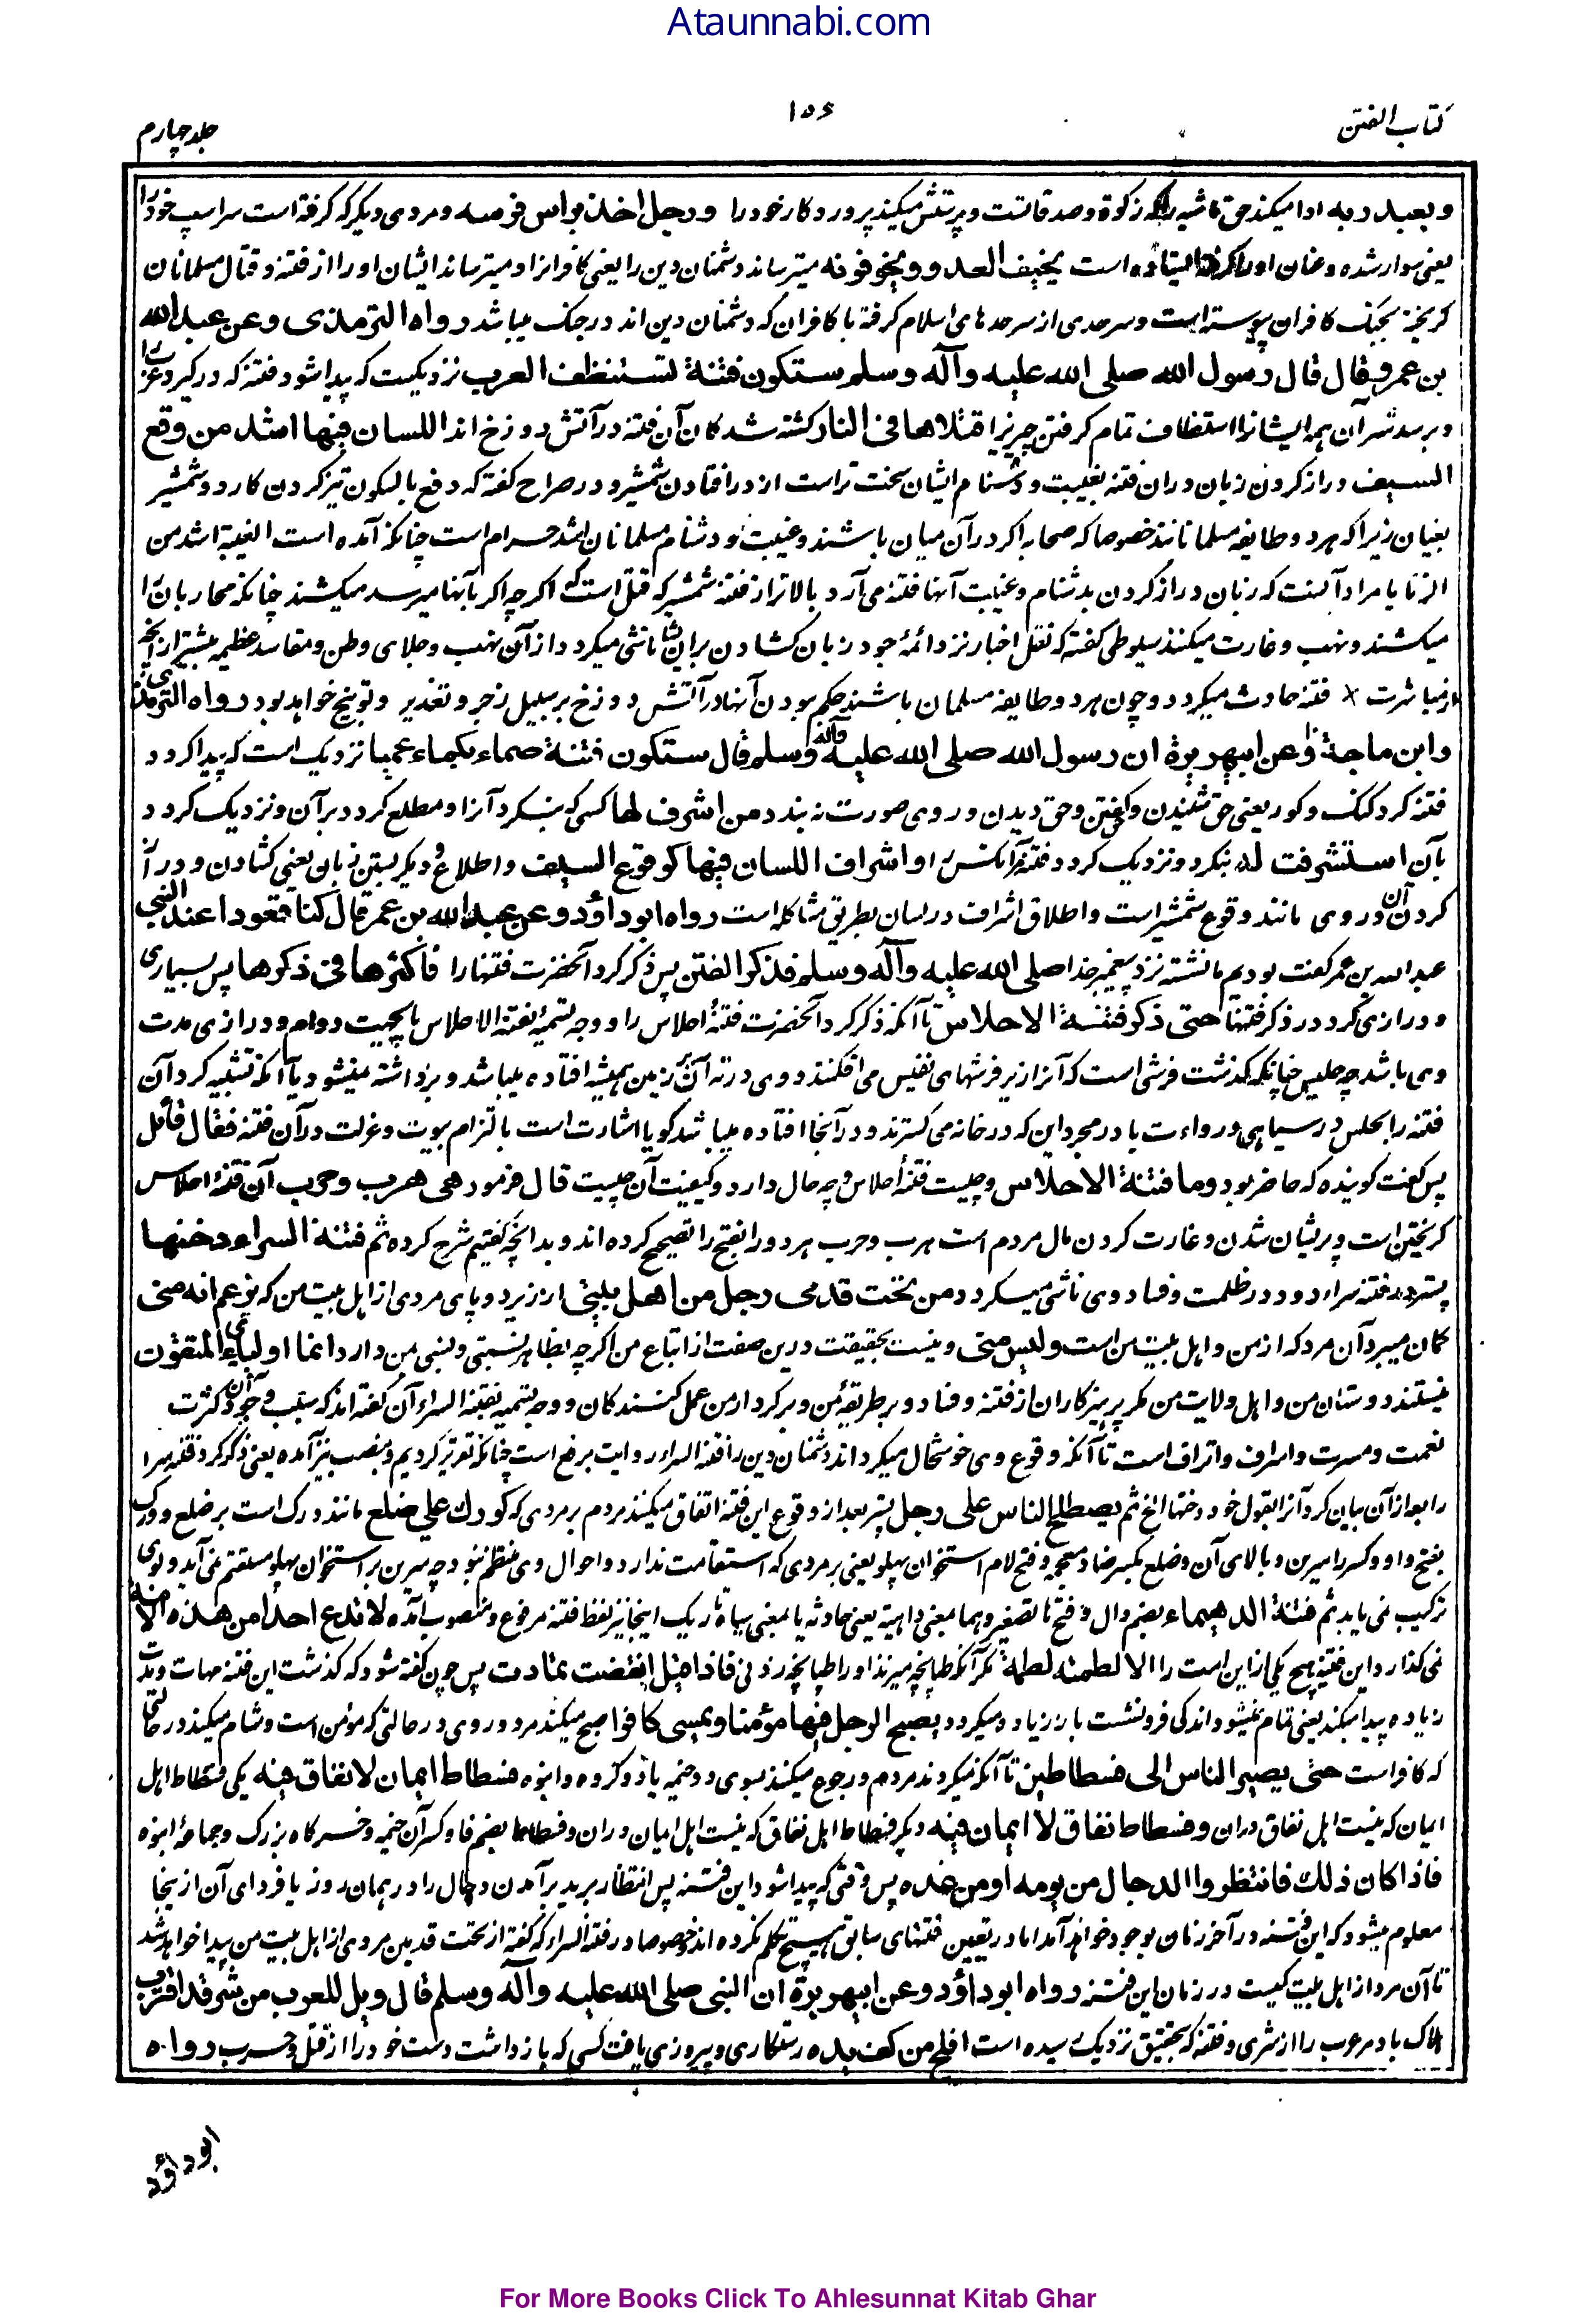 Ataunnabi.com
كتاب الفتن
۱۵۶
جلد چہارم
و یعبد ربه ادا میکند حق ماشیه را که زکوة و صدقاتست و پرستش میکند پروردکار خود را ورجل اخذ براس فرسه و مردی دیکر که کرفته است سر اسپ خود را
یعنی سوار شده و عنان او را کرفته ایستاده است یخیف العدو ویخوفونه میترساند دشمنان دین را یعنی کافرانرا و میترسانند ایشان او را از فتنه و قتال مسلمانان
کریخته بجنک کافران پیوسته است و سرحدی از سرحدهای اسلام کرفته با کافران که دشمنان دین اند در جنک میباشد رواه الترمذی وعن عبد الله
بن عمرو قال قال رسول الله صلی الله علیه وآله وسلم ستکون فتنة تستنظف العرب نزدیکست که پیدا شود فتنه که درکیرد عرب را
و برسد شر آن همه ایشانرا استنظاف تمام کرفتن چیزیرا قتلاها فی النار کشته شدکان آن فتنه در آتش دوزخ اند اللسان فیها اشد من وقع
السیف دراز کردن زبان دران فتنه بغیبت و دشنام ایشان سخت تر است از در افتادن شمشیر و در صراح کفته که وقع بالسکون تیز کردن کارد و شمشیر
بفسان زیرا که هر دو طایفه مسلمانانند خصوصا که صحابه اکر در آن میان باشند و غیبت و دشنام مسلمانان اشد حرام است چنانکه آمده است الغیبة اشد من
الزنا یا مراد آنست که زبان دراز کردن بدشنام و غیبت آنها فتنه می آرد بالاتر از فتنه شمشیر که قتل است اکرچه اکر بآنها میرسد میکشند چنانکه محاربان را
میکشند و نهب و غارت میکنند سیوطی کفته که نقل اخبار نزد ائمهٔ جور و زبان کشادن بر ایشان ناشی میکردد از آن نهب و جلای وطن و مفاسد عظیمه بیشتر از آنچه
از مباشرت فتنه حادث میکردد و چون هر دو طایفه مسلمان باشند حکم بودن آنها در آتش دوزخ بر سبیل زجر و تغدیر و توبیخ خواهد بود رواه الترمذی
وابن ماجة وعن ابیهریرة ان رسول الله صلی الله علیه وآله وسلم قال ستکون فتنة صماء بکماء عمیا نزدیک است که پیدا کردد
فتنه کر و کنک و کور یعنی حق شنیدن و حق کفتن و حق دیدن در وی صورت نه بندد من اشرف لها کسی که بنکرد آنرا و مطلع کردد بر آن و نزدیک کردد
بآن استشرفت له بنکرد و نزدیک کردد فتنه مر آنکس را و اشراف اللسان فیها کوقوع السیف و اطلاع و دیکر بستن زبان یعنی کشادن و دراز
کردن آن در وی مانند وقوع شمشیر است و اطلاق اشراف در لسان بطریق مشاکله است رواه ابو داؤد وعن عبد الله بن عمر قال کنا قعودا عند النبی
عبد الله بن عمر کفت بودیم ما نشسته نزد پیغمبر خدا صلی الله علیه وآله وسلم فذکر الفتن پس ذکر کرد آنحضرت فتنها را فاکثرها فی ذکرها پس بسیاری
و درازی کرد در ذکر فتنها حتی ذکر فتنة الاحلاس تا آنکه ذکر کرد آنحضرت فتنهٔ احلاس را و وجه تسمیهٔ بفتنة الاحلاس یا بجهت دوام و درازی مدت
وی باشد چه حلس چنانکه کذشت فرشی است که آنرا زیر فرشهای نفیس می افکنند و وی در ته آن بر زمین همیشه افتاده میباشد و برداشته نمیشود یا آنکه تشبیه کرد آن
فتنه را بحلس در سیاهی و رداءت یا در مجرد این که در خانه می کسترند و در آنجا افتاده میباشد کویا اشارت است بالتزام بیوت و عزلت در آن فتنه فقال قائل
پس کفت کوینده که حاضر بود وما فتنة الاحلاس و چیست فتنهٔ احلاس و چه حال دارد و کیفیت آن چیست قال فرمود هی هرب وحرب آن فتنهٔ احلاس
کریختن است و پریشان شدن و غارت کردن مال مردم است هرب و حرب هر دو را بفتح را تصحیح کرده اند و بدانچه کفتیم شرح کرده ثم فتنة السراء دخنها
پستر فتنه سراء دود و ظلمت و فساد وی ناشی میکردد من تحت قدمی رجل من اهل بیتی از زیر دو پای مردی از اهل بیت من که یزعم انه منی
کمان میبرد آن مرد که از من و اهل بیت من است ولیس منی و نیست بحقیقت درین صفت از اتباع من اکرچه بظاهر نسبتی و نسبی بمن دارد انما اولیائی المتقون
نیستند دوستان من و اهل ولایت من مکر پرهیزکاران از فتنه و فساد و بر طریقهٔ من و بر کردار من عمل کنندکان و وجه تسمیه بفتنة السراء آن کفته اند که سبب وجود آن کثرت
نعمت و مسرت و اسراف و اتراف است تا آنکه وقوع وی خوشحال میکرداند دشمنان دین را فتنة السراء روایت برفع است چنانکه تقریر کردیم و بنصب نیز آمده یعنی ذکر کرد فتنه سرا
را بعد از آن بیان کرد آنرا بقول خود دخنها الخ ثم یصطلح الناس علی رجل پستر بعد از وقوع این فتنه اتفاق میکنند مردم بر مردی که کورك علی ضلع مانند ورک است بر ضلع و ورک
بفتح واو و کسر را سرین و بالای آن و ضلع بکسر ضاد معجمه و فتح لام استخوان پهلو یعنی بر مردی که استقامت ندارد و احوال وی منتظم نبود چه سرین بر استخوان پهلو مستقیم نمی آید و نوی
ترکیب نمی یابد ثم فتنة الدهیماء بضم دال و فتح ها تصغیر دهما بمعنی داهیه یعنی حادثه یا بمعنی سیاه تاریک اینجا نیز لفظ فتنه مرفوع و منصوب آمده لا تدع احدا من هذه الامة
نمی کذارد این فتنه هیچ یکی از این امت را الا لطمته لطمة مکر آنکه طپانچه میزند او را طپانچه زدنی فاذا قیل انقضت تمادت پس چون کفته شود که کذشت این فتنه مهات و مدت
زیاده پیدا میکند یعنی تمام نمیشود اندکی فرو نشست باز زیاد میکردد یصبح الرجل فیها مؤمنا ویمسی کافرا صبح میکند مرد در وی در حالتی که مؤمن است و شام میکند در حالتی
که کافر است حتی یصیر الناس الی فسطاطین تا آنکه میکردند مردم و رجوع میکنند بسوی دو خیمه یا دو کروه و انبوه فسطاط ایمان لا نفاق فیه یکی فسطاط اهل
ایمان که نیست اهل نفاق دران وفسطاط نفاق لا ایمان فیه دیکر فسطاط اهل نفاق که نیست اهل ایمان دران و فسطاط بضم فا و کسر آن خیمه و خرکاه بزرک و جماعهٔ انبوه
فاذا کان ذلك فانتظروا الدجال من یومه او من غده پس وقتی که پیدا شود این فتنه پس انتظار برید برآمدن دجال را در همان روز یا فردای آن از ینجا
معلوم میشود که این فتنه در آخر زمان بوجود خواهد آمد اما در تعیین فتنهای سابق هیچ تکلم نکرده اند خصوصا در فتنة السراء که کفته از تحت قدمین مردی از اهل بیت من پیدا خواهد شد
تا آن مرد از اهل بیت کیست در زمان این فتنه رواه ابو داؤد وعن ابیهریرة ان النبی صلی الله علیه وآله وسلم قال ویل للعرب من شر قد اقترب
هلاک باد مر عرب را از شری و فتنه که بتحقیق نزدیک رسیده است افلح من کف یده رستکاری و پیروزی یافت کسی که باز داشت دست خود را از قتل و حرب رواه
ابو داؤد
For More Books Click To Ahlesunnat Kitab Ghar